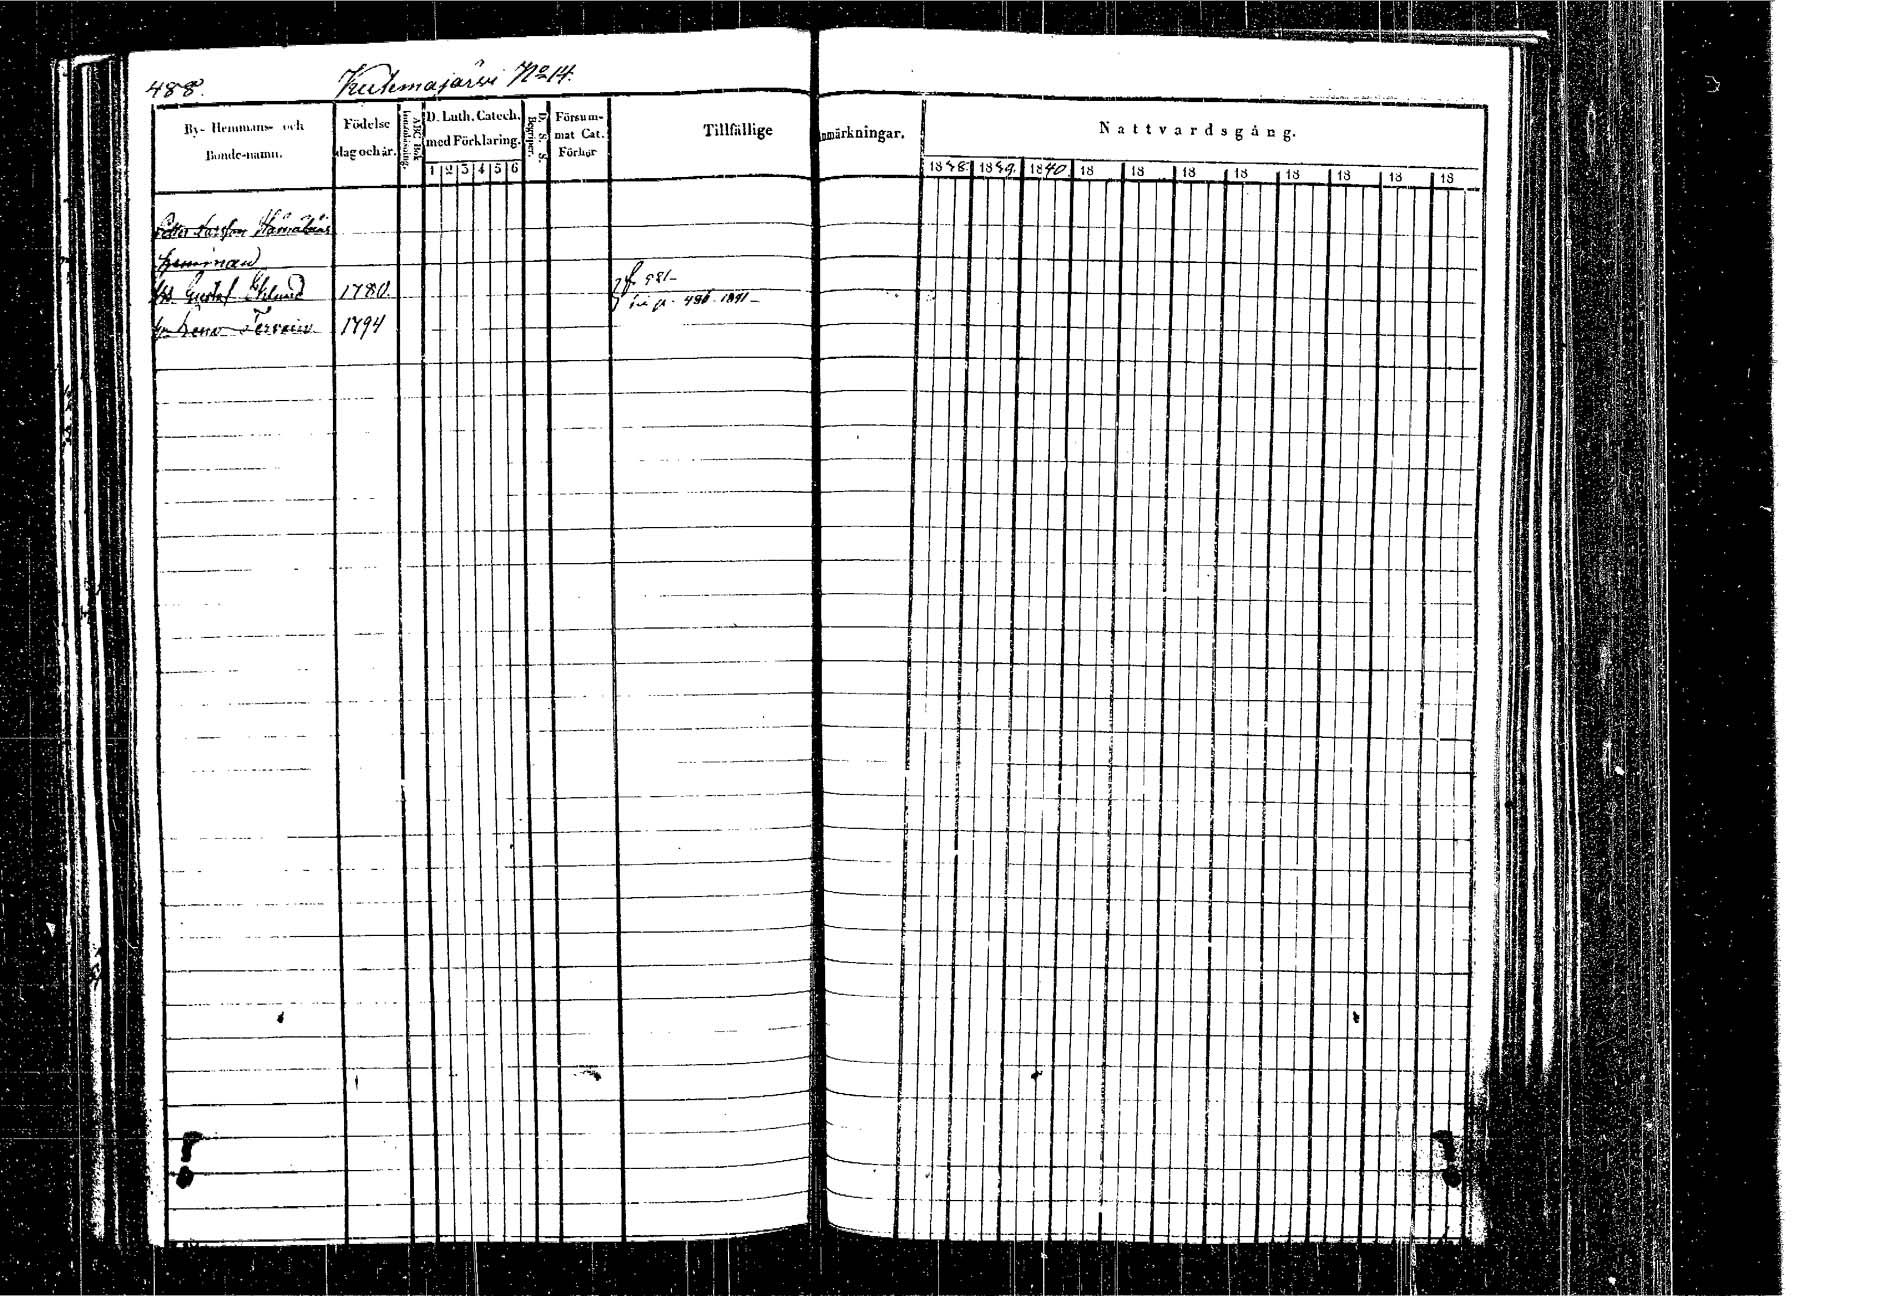 488. Kutemajärvi No 14.
By- Hemmans- och Bonde-namn.
Födelse dag och år.
ABC Bok Innanläsning.
D. Luth. Catech. med Förklaring.
1 2 3 4 5 6
D. S. S. Begriper.
Försummat Cat. Förhör
Tillfällige Anmärkningar.
Nattvardsgång.
1838. 1839. 1840. 18 18 18 18 18 18 18 18
Petter Larsson
Hemman
Gustaf Eklund 1780. 981-
1794 486. 1841-